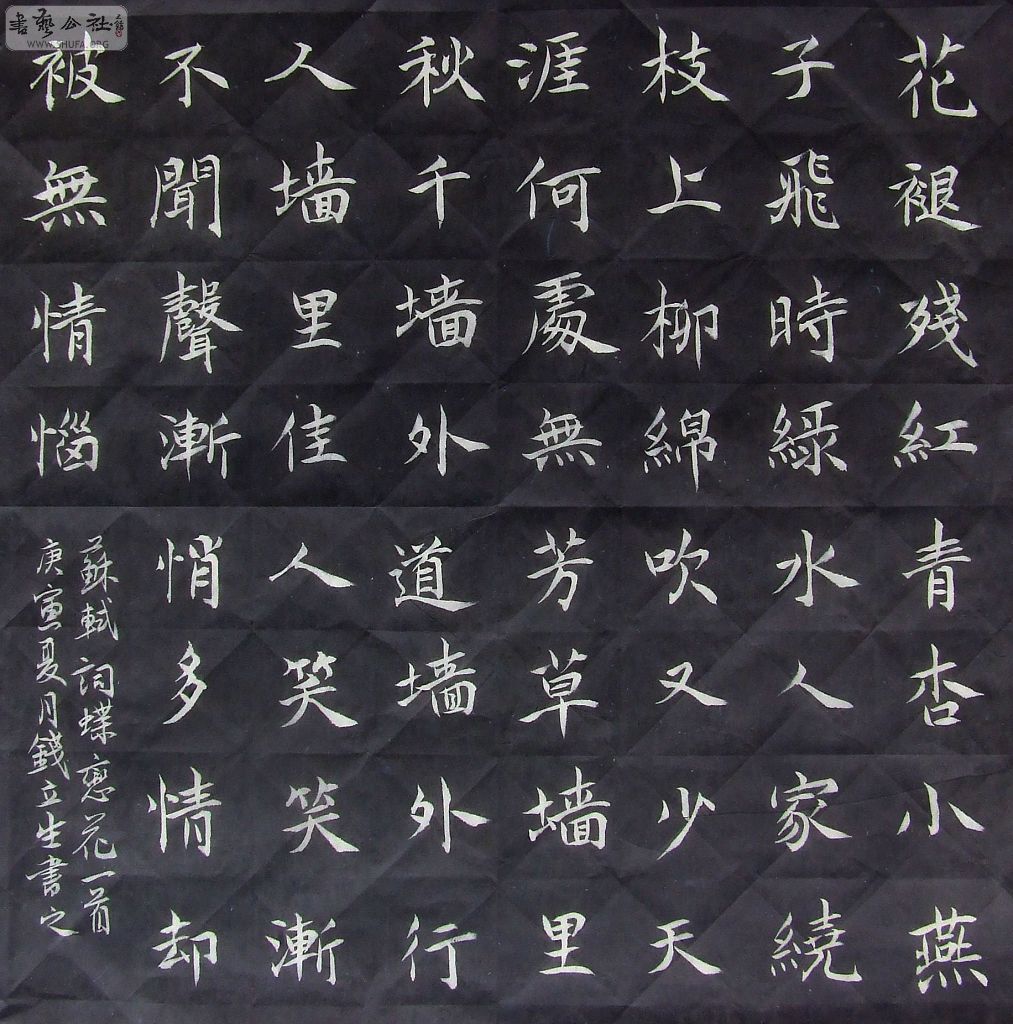 花褪殘紅青杏小燕
子飛時緑水人家繞
枝上柳綿吹又少天
涯何處無芳草墙里
秋千墙外道墙外行
人墙里佳人笑笑漸
不聞聲漸悄多情却
被無情惱
蘇軾詞蝶戀花一首
庚寅夏月錢立生書之
書藝公社
WWW.SHUFA.ORG